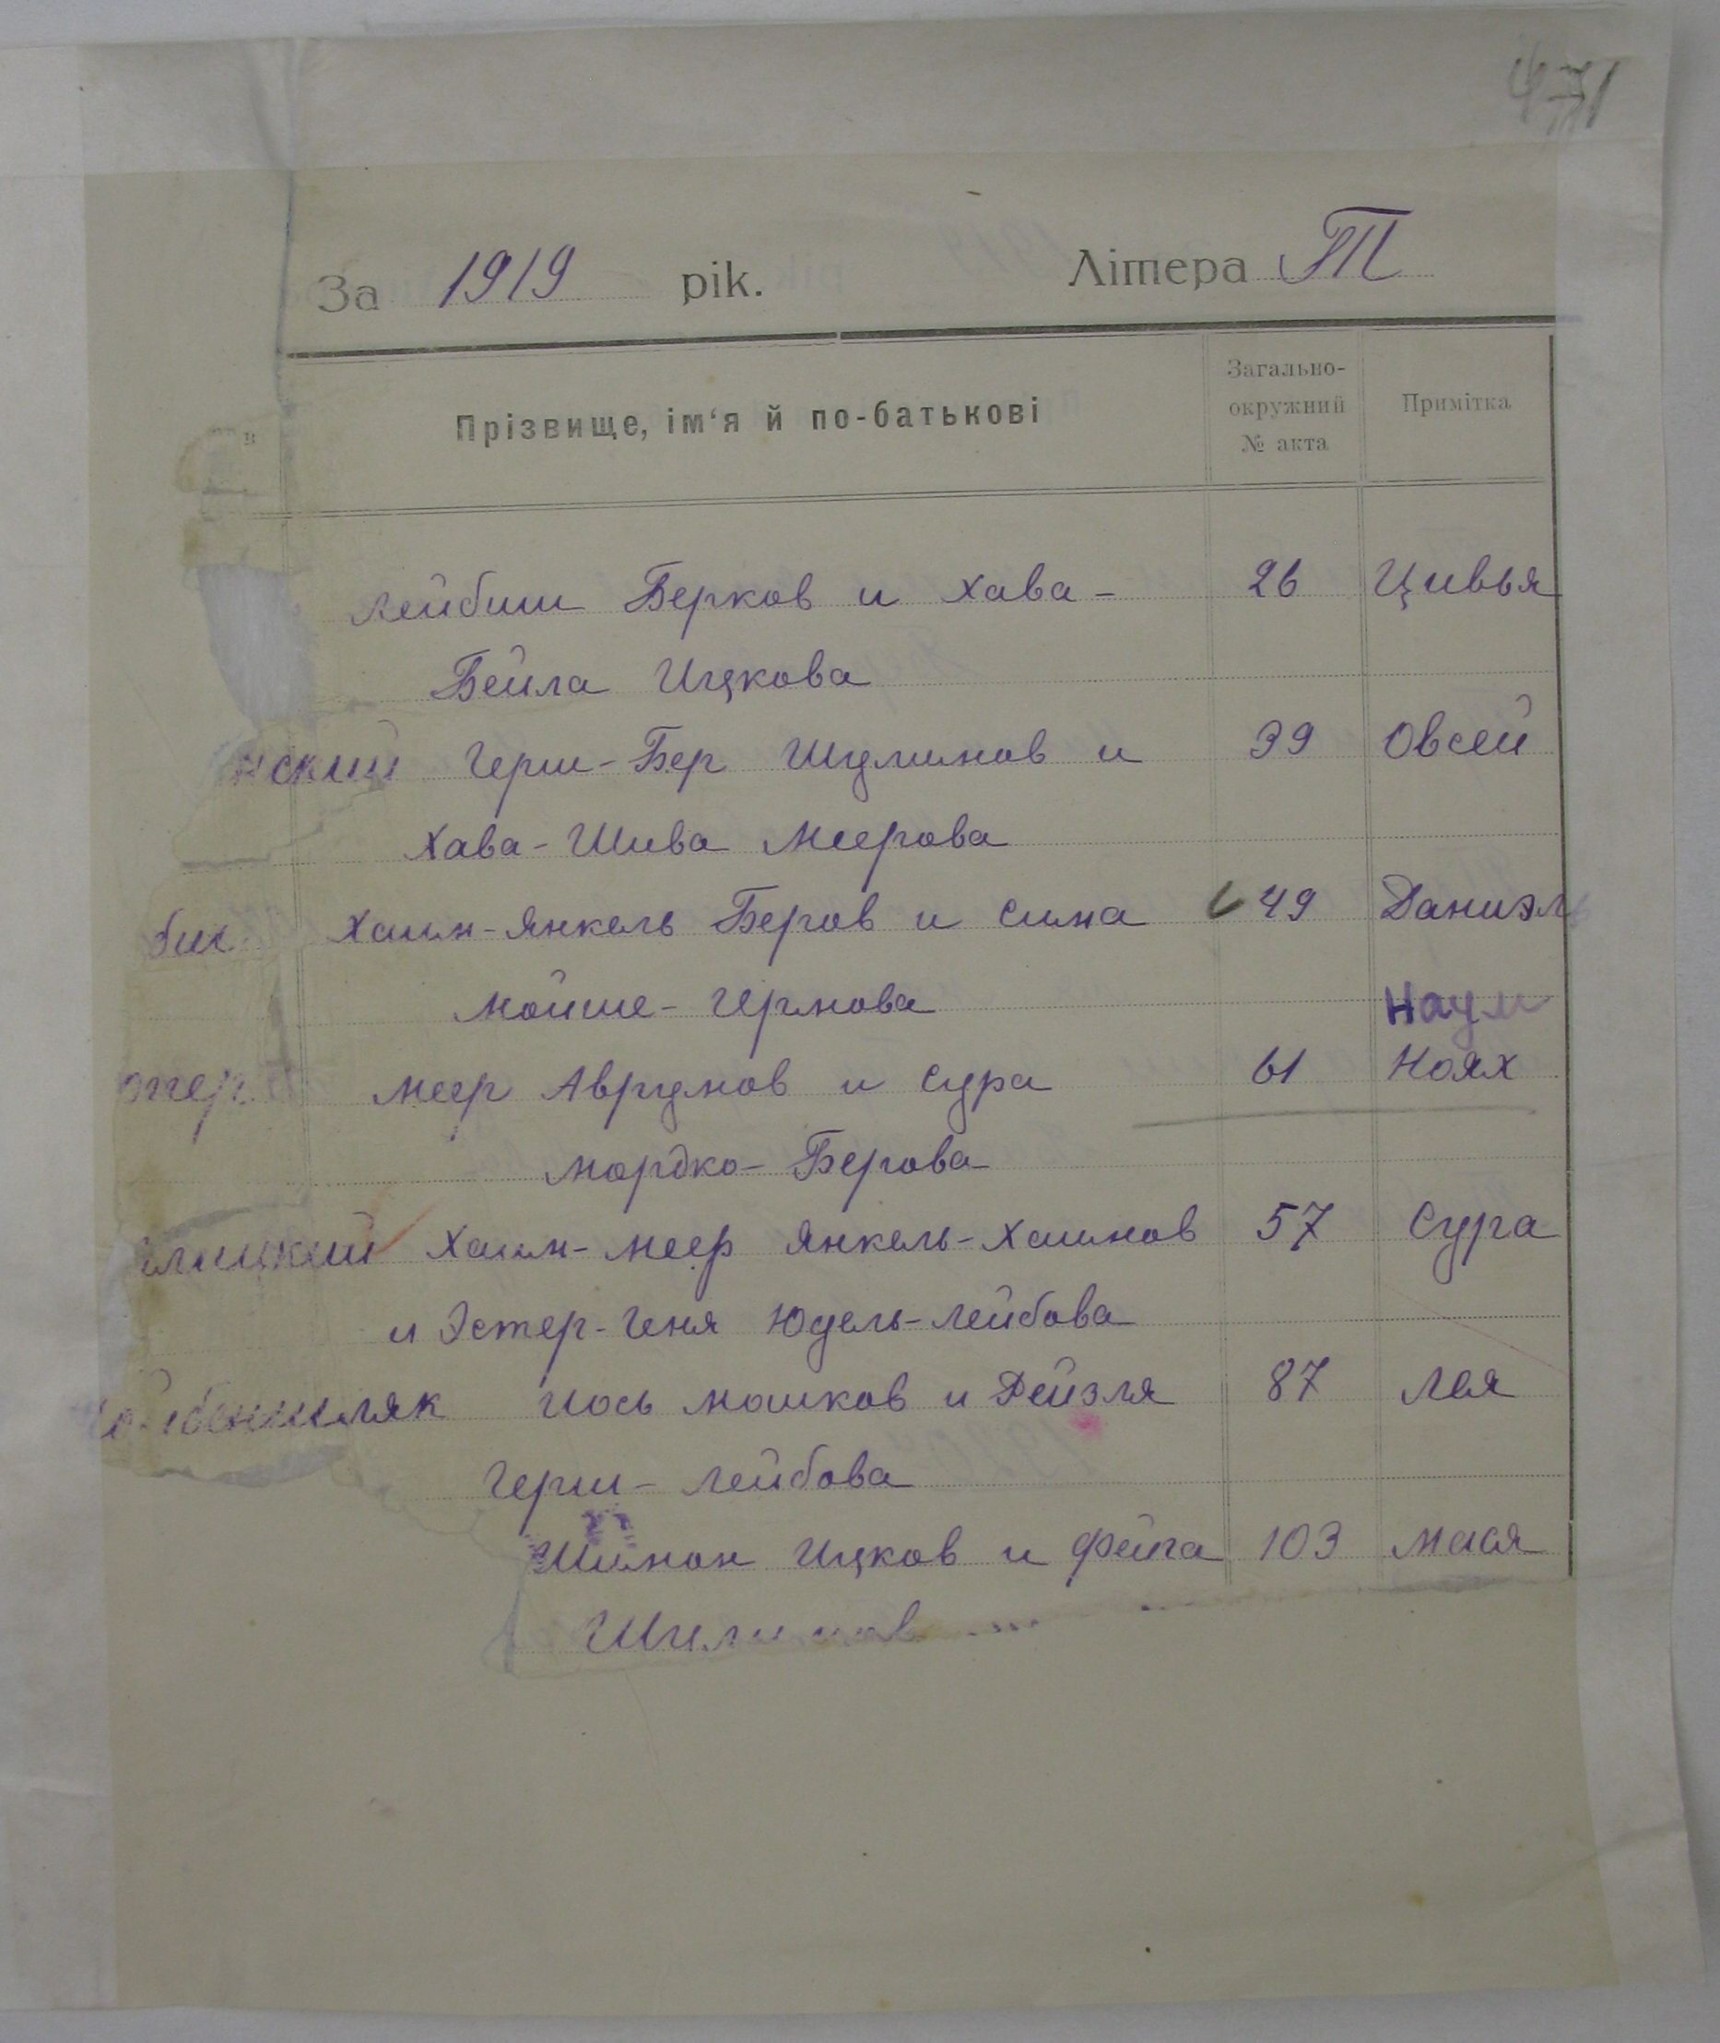 471
За 1919 рік. Літера Т
Прізвище, ім‘я й по-батькові
Загально-окружний № акта
Примітка
Лейбиш Берков и Хава- 26 Цивья
Бейла Ицкова
нский Герш-Бер Шулимов и 39 Овсей
Хава-Шива Меерова
бис Хаим-Янкель Беров и Сима 49 Даниэль
Мойше-Гершова Наум
Меер Аврумов и Сура 61 Ноях
Мордко-Берова
Хаим-Меер Янкель-Хаимов 57 Сура
и Эстер-Геня Юдель-Лейбова
Иось Мошков и Рейзля 87 Лея
Герш-Лейбова
Шимон Ицков и Фейга 103 Мася